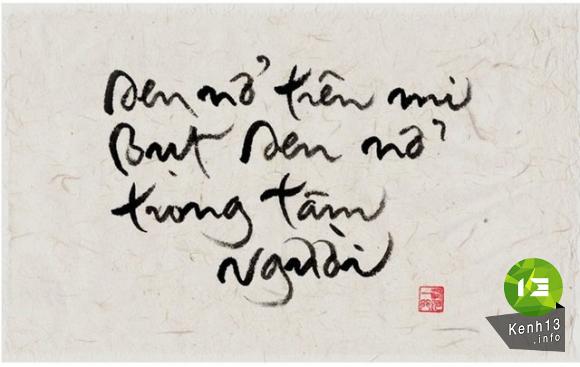 sen nở trên mi
Bụt sen nở
trong tâm
người
Kenh13
.info